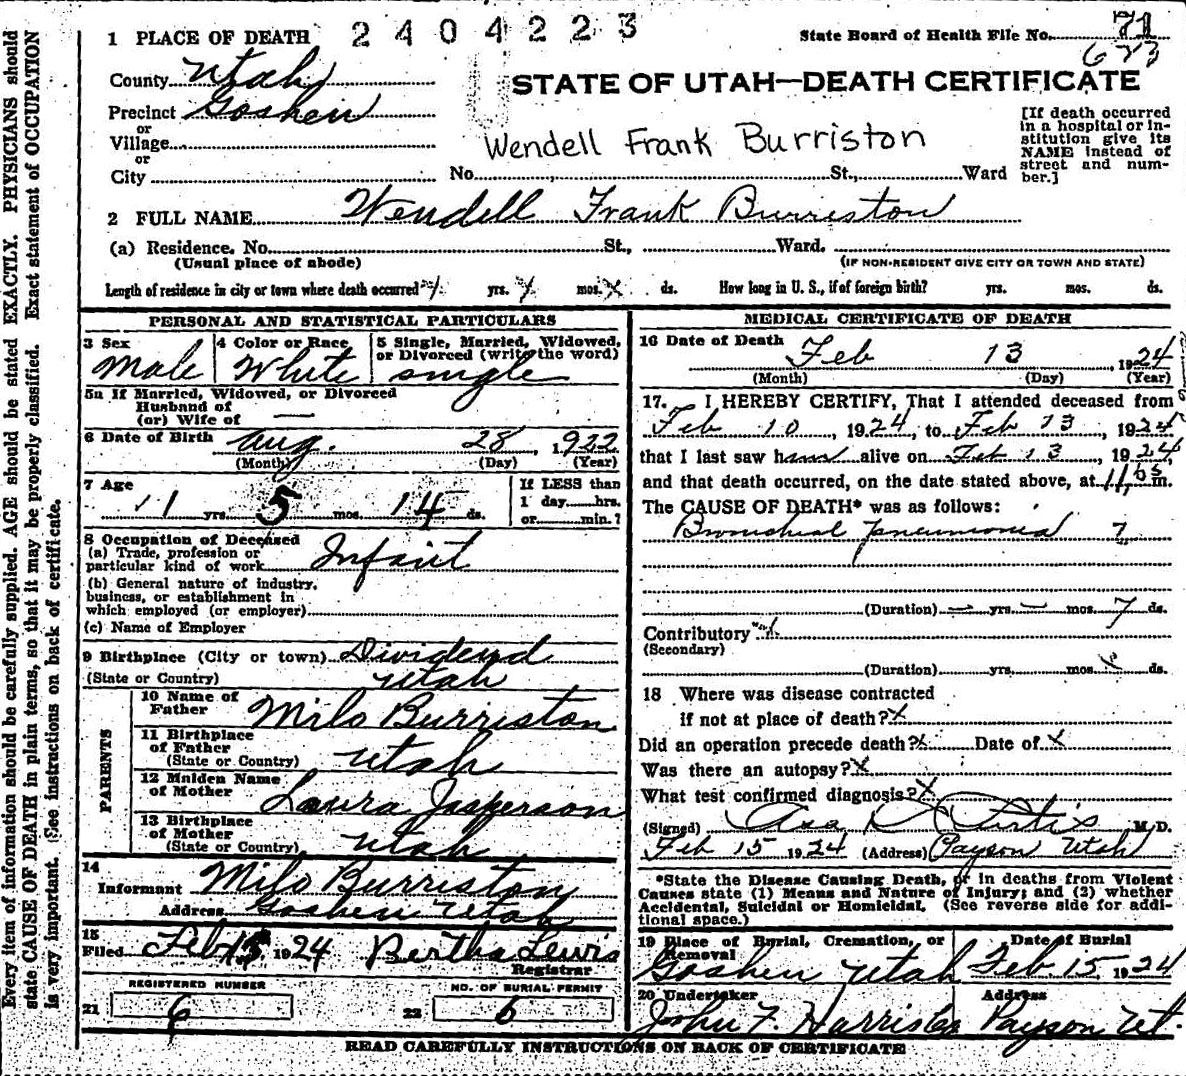 1 PLACE OF DEATH 2404223 State Board of Health File No. 71
623
County Utah STATE OF UTAH—DEATH CERTIFICATE
Precinct Goshen
or
Village
or
City No. St., Ward
Wendell Frank Burriston
[If death occurred
in a hospital or in-
stitution give its
NAME instead of
street and num-
ber.]
2 FULL NAME Wendell Frank Burriston
(a) Residence. No. St., Ward.
(Usual place of abode) (IF NON-RESIDENT GIVE CITY OR TOWN AND STATE)
Length of residence in city or town where death occurred yrs. mos. ds. How long in U. S., if of foreign birth? yrs. mos. ds.
PERSONAL AND STATISTICAL PARTICULARS
3 Sex
Male
4 Color or Race
White
5 Single, Married, Widowed,
or Divorced (write the word)
single
5a If Married, Widowed, or Divorced
Husband of
(or) Wife of —
6 Date of Birth Aug. 28, 1922
(Month) (Day) (Year)
7 Age
1 yrs. 5 mos. 14 ds.
If LESS than
1 day hrs.
or min.?
8 Occupation of Deceased
(a) Trade, profession or
particular kind of work Infant
(b) General nature of industry,
business, or establishment in
which employed (or employer)
(c) Name of Employer
9 Birthplace (City or town) Dividend
(State or Country) Utah
PARENTS
10 Name of
Father Milo Burriston
11 Birthplace
of Father
(State or Country) Utah
12 Maiden Name
of Mother Laura Jasperson
13 Birthplace
of Mother
(State or Country) Utah
14
Informant Milo Burriston
Address Goshen Utah
15
Filed Feb 15 1924 Bertha Lewis
Registrar
REGISTERED NUMBER
21 6
NO. OF BURIAL PERMIT
22 6
MEDICAL CERTIFICATE OF DEATH
16 Date of Death Feb 13, 1924
(Month) (Day) (Year)
17. I HEREBY CERTIFY, That I attended deceased from
Feb 10, 1924, to Feb 13, 1924
that I last saw him alive on Feb 13, 1924,
and that death occurred, on the date stated above, at m.
The CAUSE OF DEATH* was as follows:
Bronchial pneumonia 7
(Duration) — yrs. — mos. 7 ds.
Contributory
(Secondary)
(Duration) yrs. mos. x ds.
18 Where was disease contracted
if not at place of death? X
Did an operation precede death? X Date of X
Was there an autopsy? X
What test confirmed diagnosis? X
(Signed) Asa M. D.
Feb 15 1924 (Address) Payson Utah
*State the Disease Causing Death, or in deaths from Violent
Causes state (1) Means and Nature of Injury; and (2) whether
Accidental, Suicidal or Homicidal. (See reverse side for addi-
tional space.)
19 Place of Burial, Cremation, or Date of Burial
Removal
Goshen Utah Feb 15 1924
20 Undertaker Address
John F. Payson Ut.
READ CAREFULLY INSTRUCTIONS ON BACK OF CERTIFICATE
Every item of information should be carefully supplied. AGE should be stated EXACTLY. PHYSICIANS should
state CAUSE OF DEATH in plain terms, so that it may be properly classified. Exact statement of OCCUPATION
is very important. (See instructions on back of certificate.